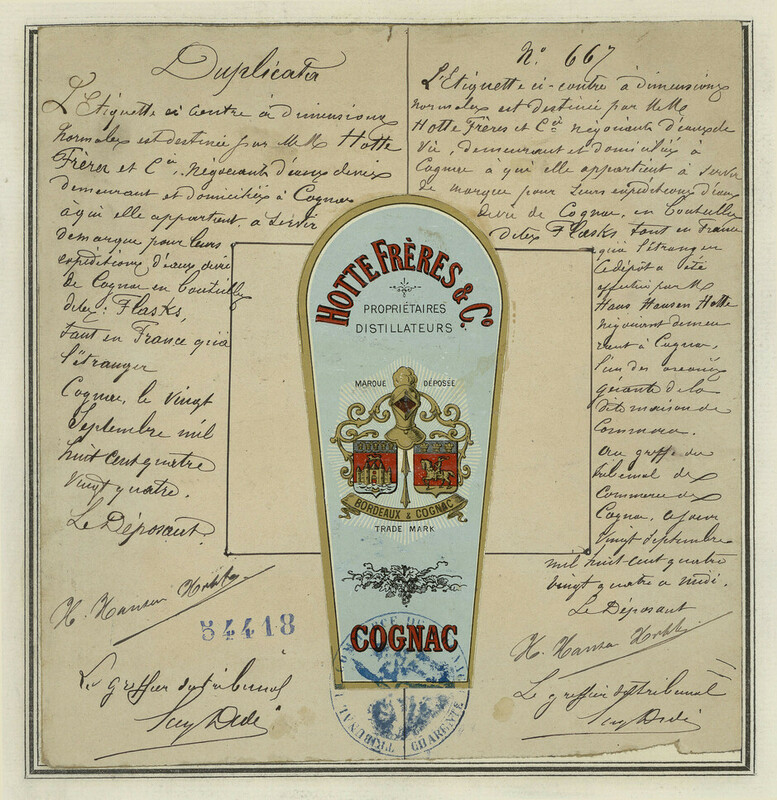 Duplicata
L'Etiquette ci contre à dimensions
normales est destinée par MM Hotte
Frères et Cie, négociants d'eaux de vie
demeurant et domiciliés à Cognac
à qui elle appartient, a servir
de marque pour leurs
expéditions d'eaux de vie
de Cognac en bouteilles
dites: Flasks,
tant en France qu'à
l'étranger
Cognac, le vingt
Septembre mil
huit cent quatre
vingt quatre.
Le Déposant
H. Hansen
54418
Le greffier du tribunal
N° 667
L'Etiquette ci-contre à dimensions
normales est destinée par MM
Hotte Frères et Cie négociants d'eaux de
vie, demeurant et domiciliés à
Cognac à qui elle appartient à servir
de marque pour leurs expéditions d'eaux
de vie de Cognac, en bouteilles
dites Flasks tant en France
qu'à l'étranger
Ce dépôt a été
effectué par M
Hans Hansen Hotte
négociant demeu
rant à Cognac,
l'un des associés
gérants de la
dite maison de
Commerce.
Au greffe du
tribunal de
Commerce de
Cognac, ce jour
vingt septembre
mil huit-cent quatre
vingt quatre à midi.
Le Déposant
H. Hansen
Le greffier du tribunal
HOTTE FRÈRES & Co.
PROPRIÉTAIRES
DISTILLATEURS
MARQUE DÉPOSÉE
BORDEAUX & COGNAC
TRADE MARK
COGNAC
TRIBUNAL
CHARENTE